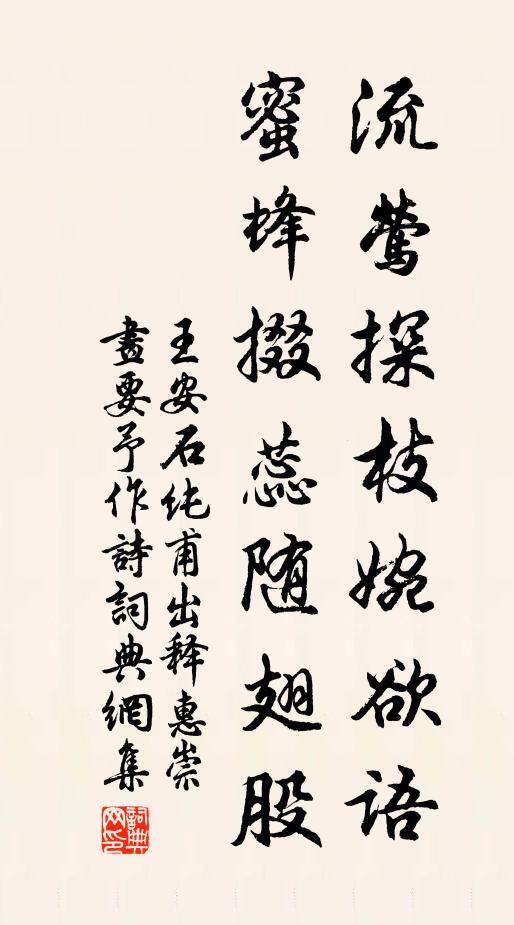 流莺探枝婉欲语
蜜蜂掇蕊随翅股
王安石纯甫出释惠崇
畫要予作詩詞典網集
詞典网印